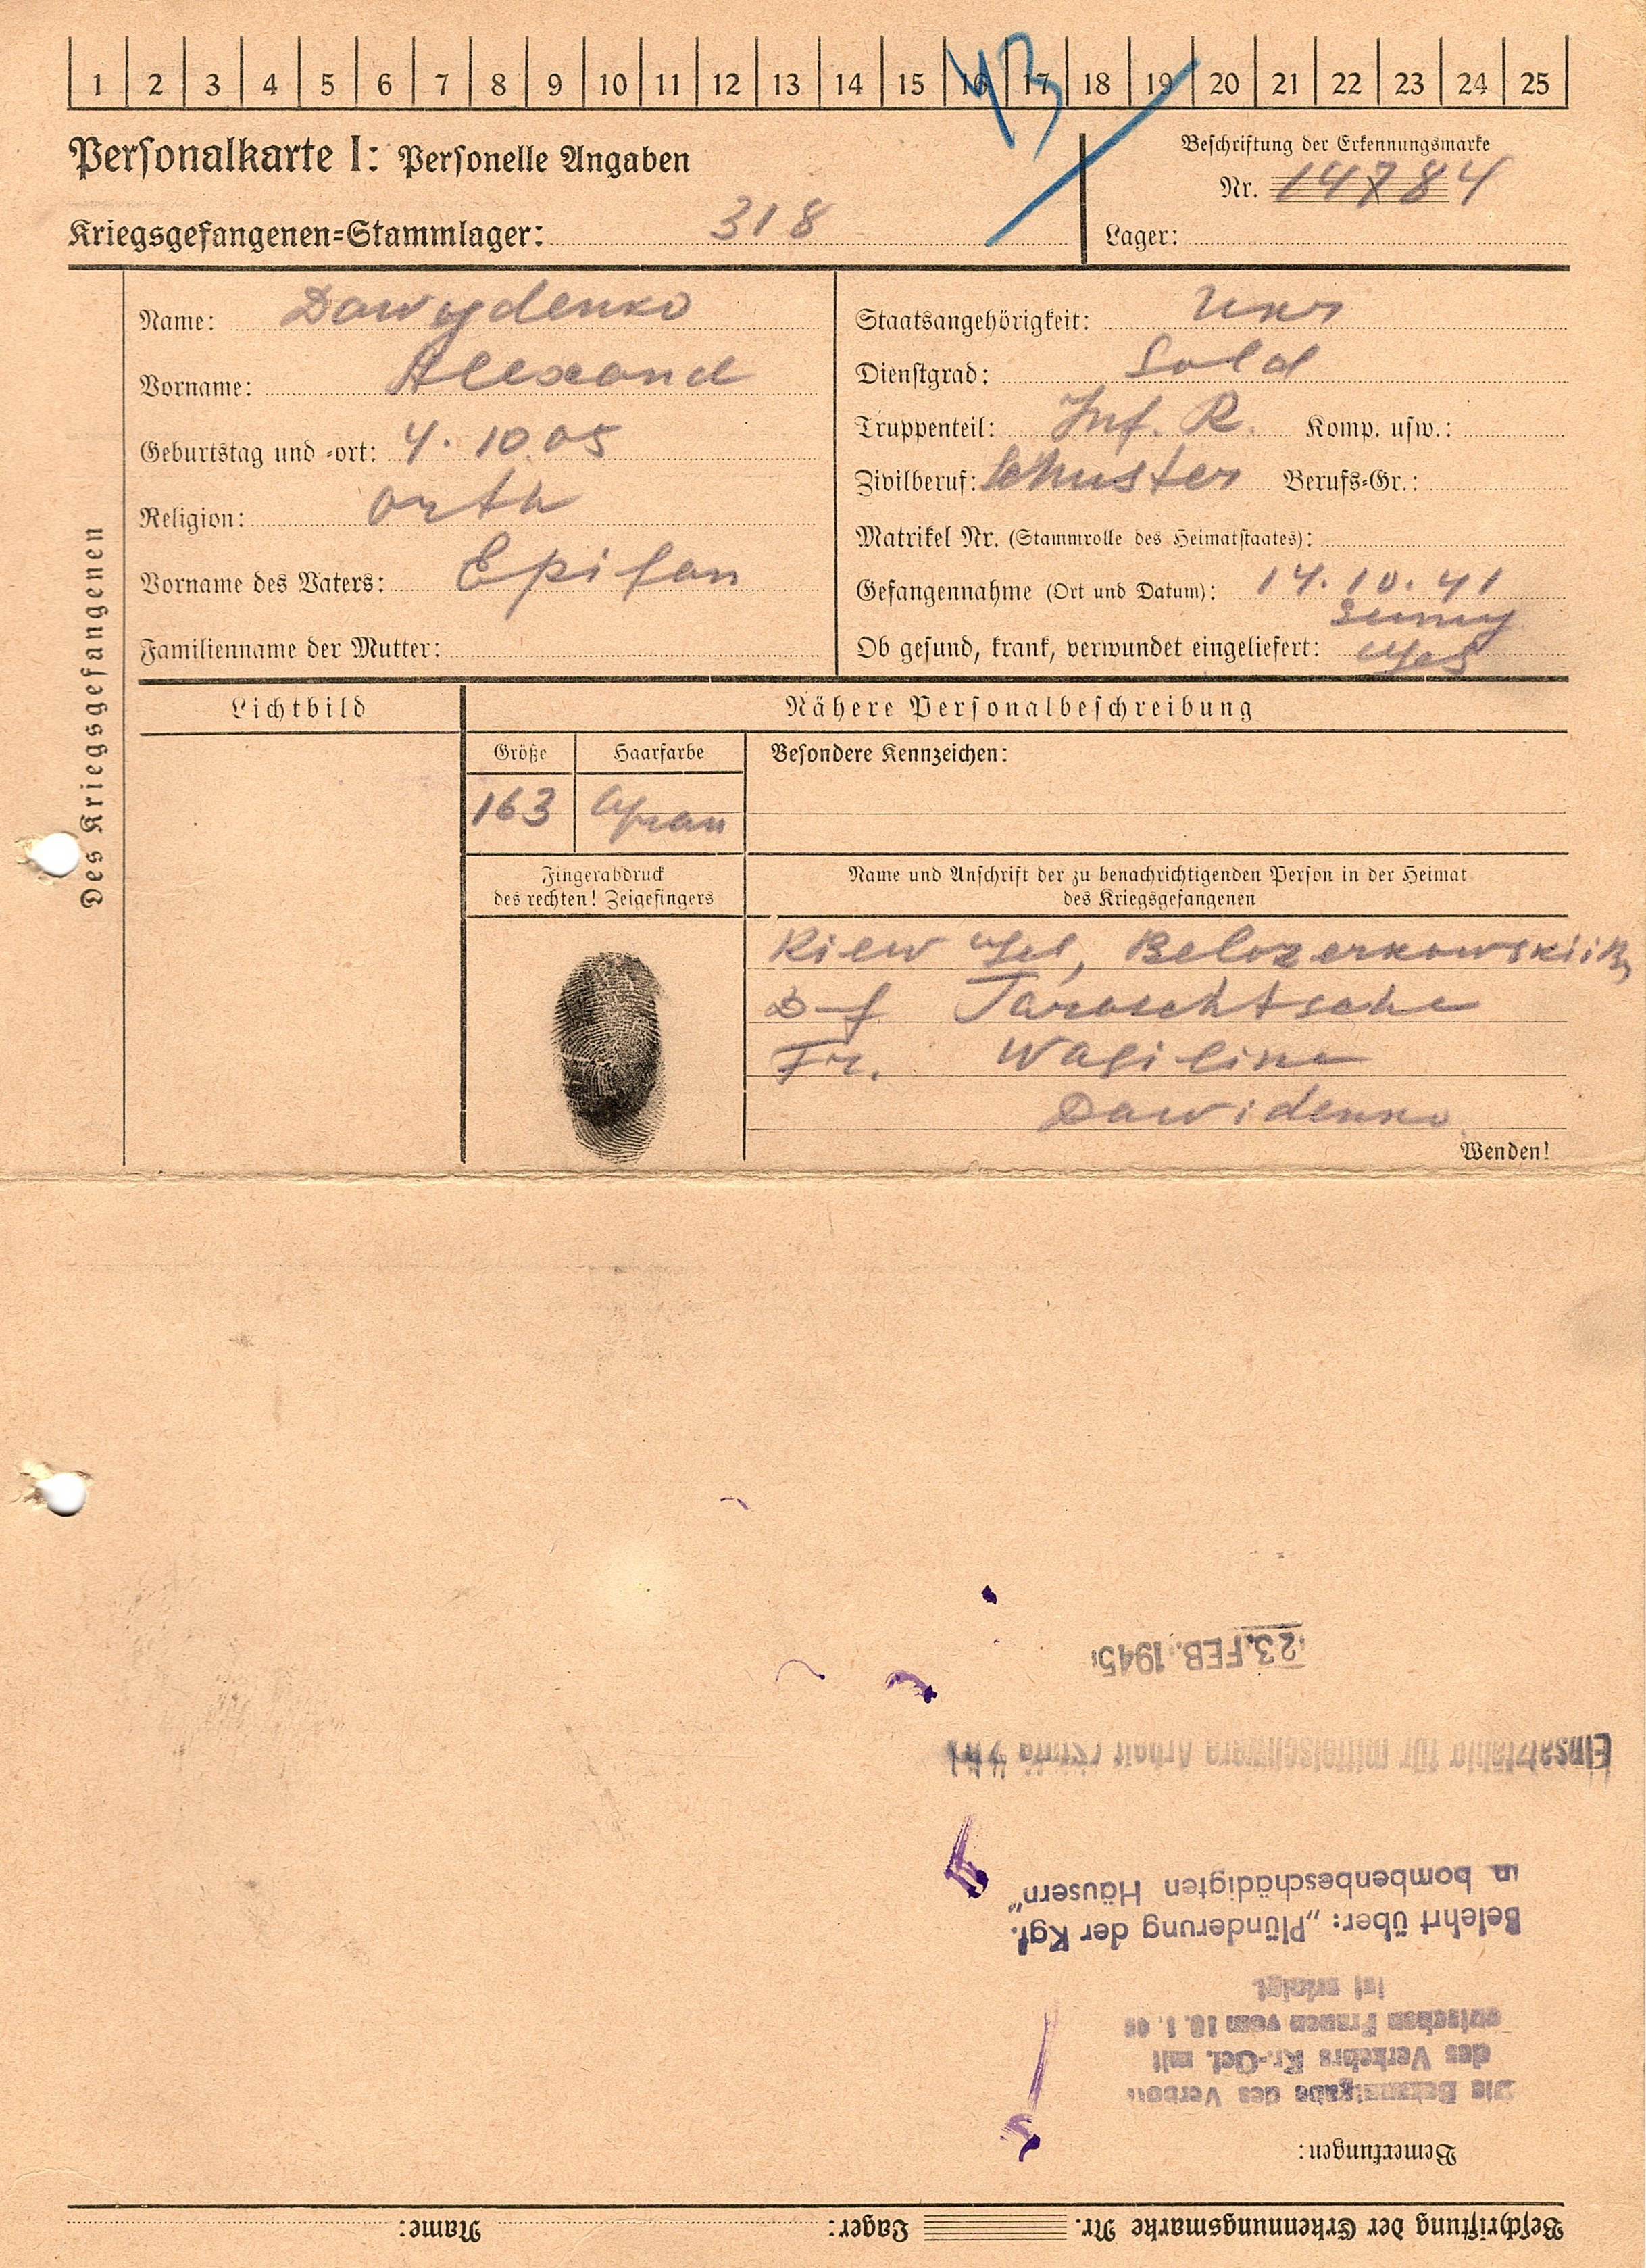 1 2 3 4 5 6 7 8 9 10 11 12 13 14 15 16 17 18 19 20 21 22 23 24 25
43
Personalkarte I: Personelle Angaben
Beschriftung der Erkennungsmarke
Nr. 14784
Kriegsgefangenen-Stammlager: 318
Lager:
Des Kriegsgefangenen
Name: Dawydenko
Vorname: Alexand
Geburtstag und -ort: 4.10.05
Religion: orth
Vorname des Vaters: Epifan
Familienname der Mutter:
Staatsangehörigkeit: Ukr
Dienstgrad: Sold
Truppenteil: Inf. R. Komp. usw.:
Zivilberuf: Schuster Berufs-Gr.:
Matrikel Nr. (Stammrolle des Heimatstaates):
Gefangennahme (Ort und Datum): 14.10.41
Sumy
Ob gesund, krank, verwundet eingeliefert: Ges
Lichtbild
Nähere Personalbeschreibung
Größe Haarfarbe Besondere Kennzeichen:
163 Grau
Fingerabdruck
des rechten! Zeigefingers
Name und Anschrift der zu benachrichtigenden Person in der Heimat
des Kriegsgefangenen
Kiew Gel, Belozerkowskii
D-f Taroschtsche
Fr. Wasiline
Dawidenko
Wenden!
23. FEB. 1945
Einsatzfähig für mittelschwere Arbeit
Belehrt über: „Plünderung der Kgf.
in bombenbeschädigten Häusern"
Die Bekanntgabe des Verbots
des Verkehrs Kr.-Gef. mit
deutschen Frauen vom 10. 1.
ist erfolgt
Bemerkungen:
Beschriftung der Erkennungsmarke Nr. Lager: Name: